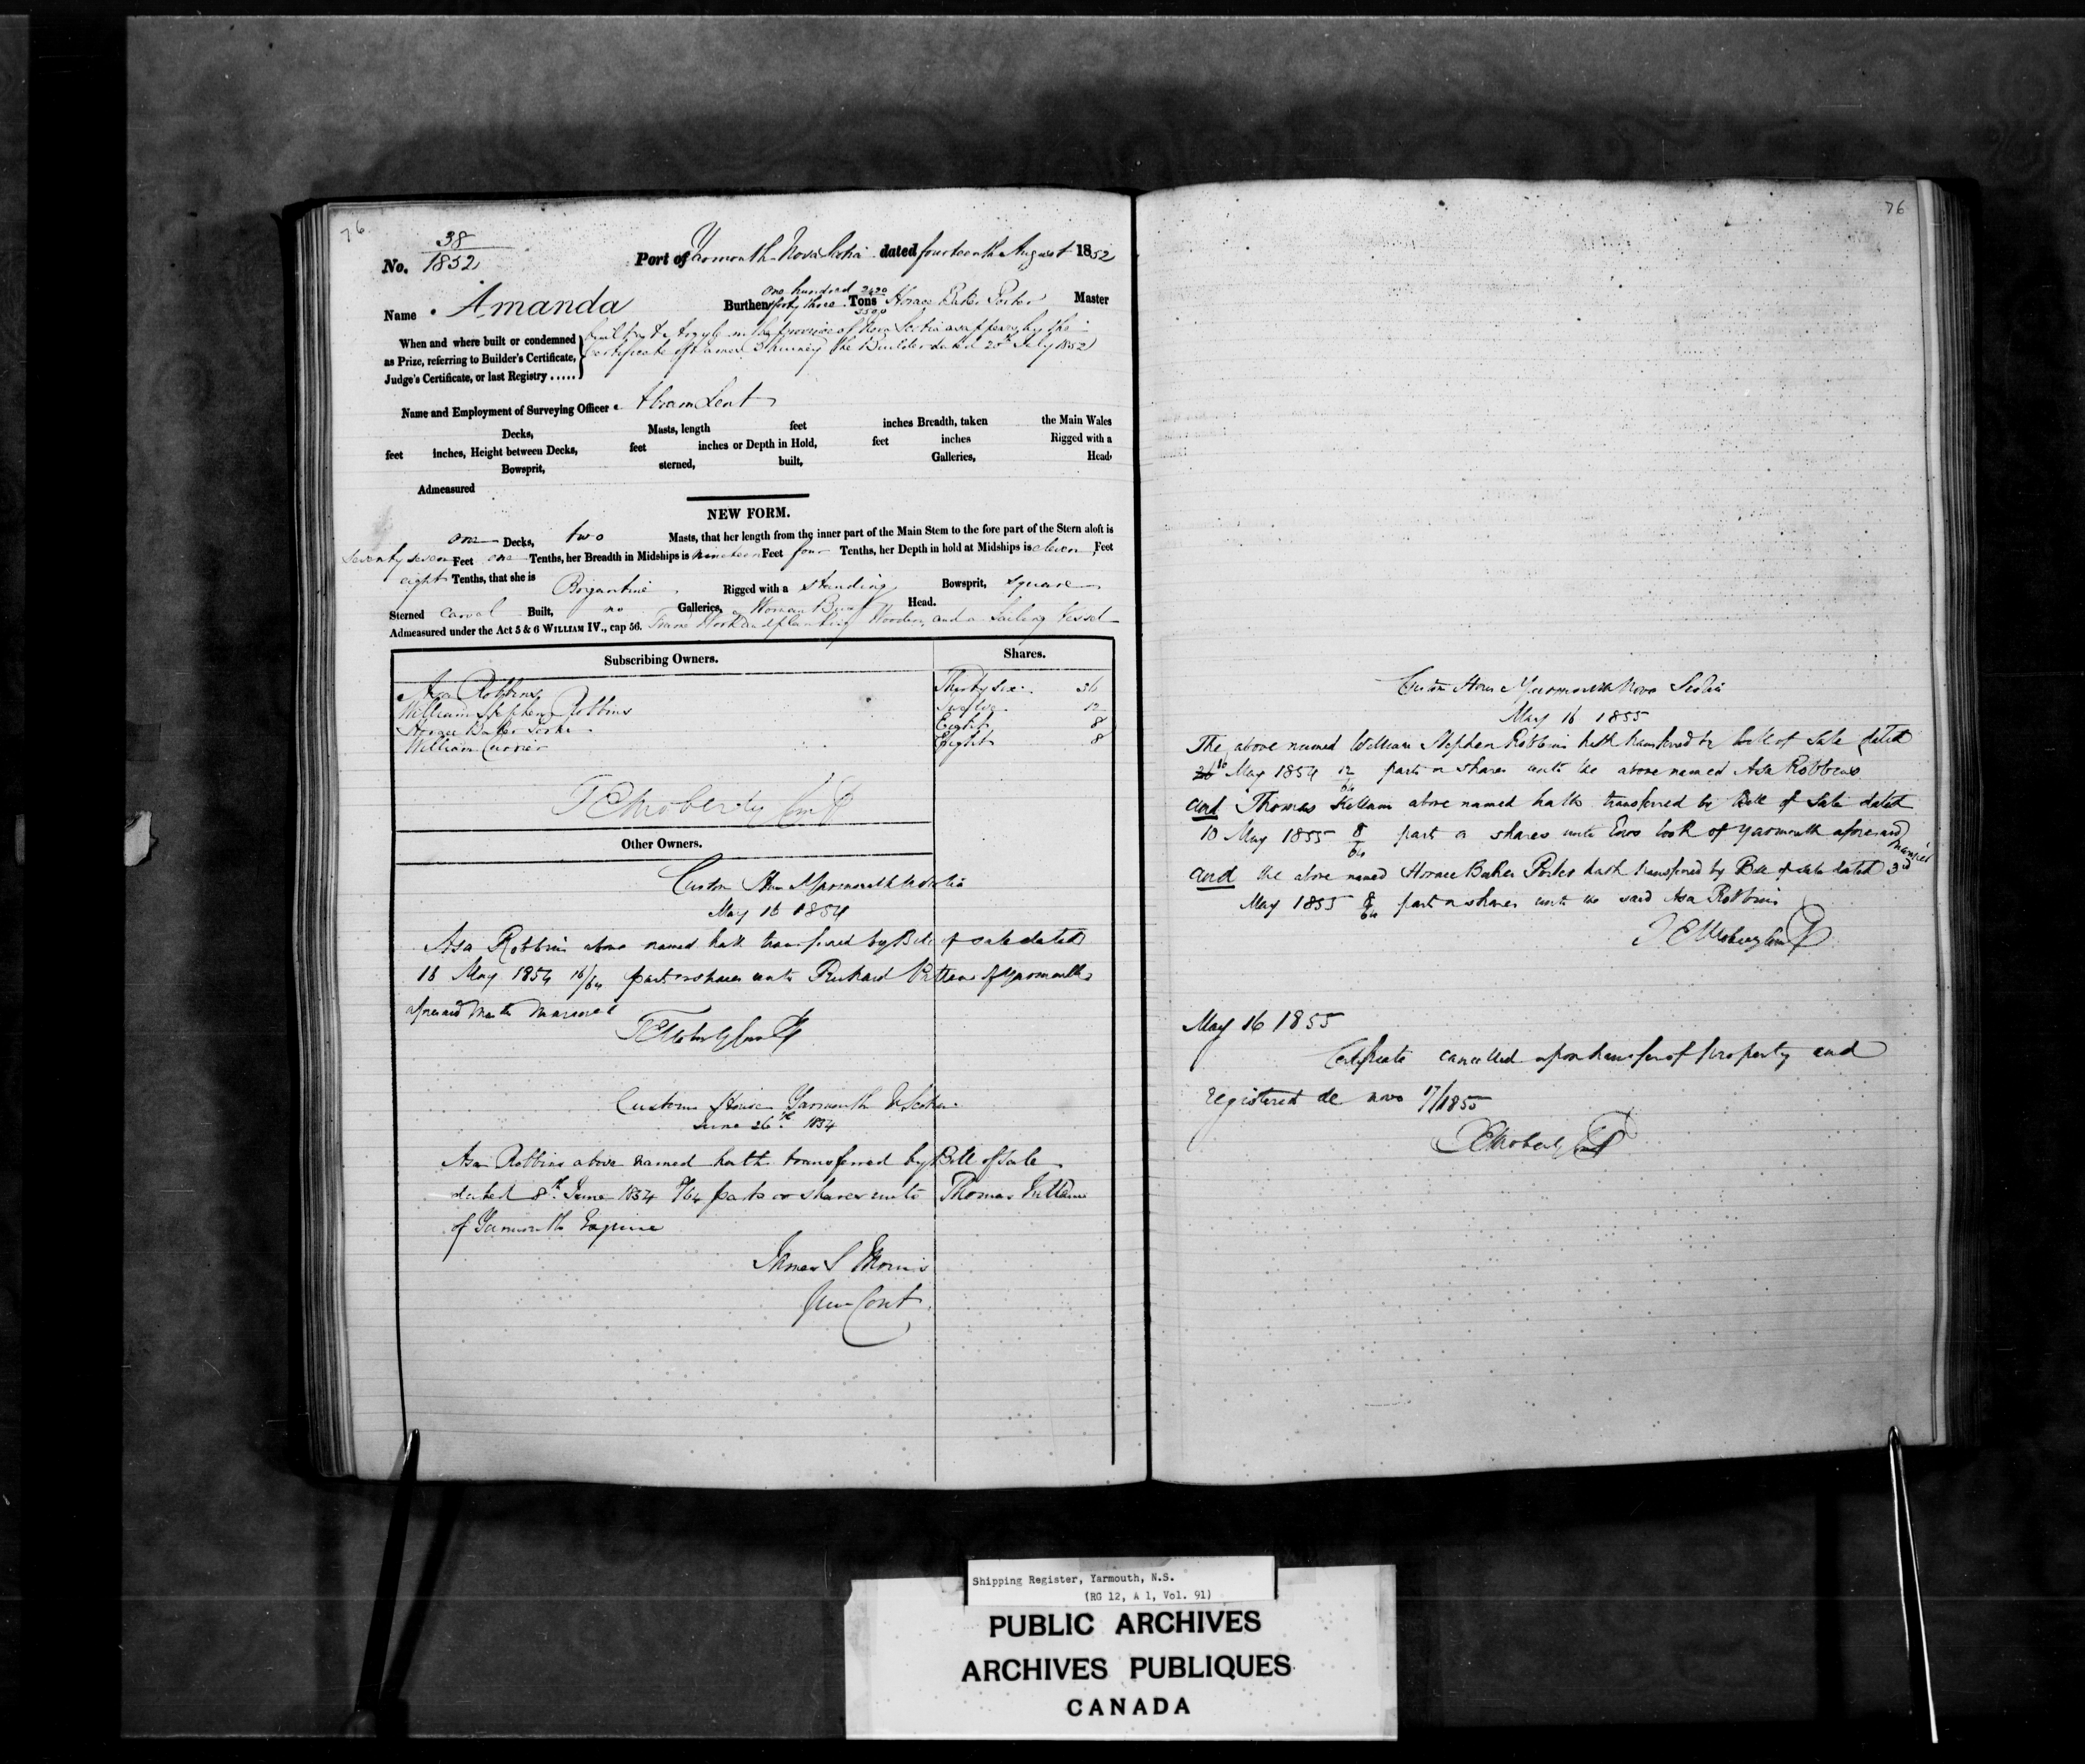 76
38
No. 1852
Port of Yarmouth Nova Scotia dated fourteenth August 1852
Name Amanda
Burthen one hundred forty three Tons Horace Baker Porter Master
When and where built or condemned as Prize, referring to Builder's Certificate, Judge's Certificate, or last Registry .....
built at Argyle in the province of Nova Scotia as appears by the
Certificate of James the Builder dated 20th July 1852
Name and Employment of Surveying Officer Abram Lent
Decks, Masts, length feet inches Breadth, taken the Main Wales
feet inches, Height between Decks, feet inches or Depth in Hold, feet inches Rigged with a
Bowsprit, sterned, built, Galleries, Head,
Admeasured
NEW FORM.
one Decks, two Masts, that her length from the inner part of the Main Stem to the fore part of the Stern aloft is
seventy seven Feet one Tenths, her Breadth in Midships is nineteen Feet four Tenths, her Depth in hold at Midships is eleven Feet
eight Tenths, that she is Brigantine Rigged with a standing Bowsprit, square
Sterned carvel Built, no Galleries, Woman Bust Head.
Admeasured under the Act 5 & 6 WILLIAM IV., cap 56. Frame Work and planking Wooden, and a Sailing Vessel
Subscribing Owners. Shares.
Asa Robbins Thirty Six 36
William Stephen Robbins Twelve 12
Horace Baker Porter Eight 8
William Currier Eight 8
Other Owners.
Custom House Yarmouth N Scotia
May 16 1854
Asa Robbins above named hath transferred by Bill of sale dated
16 May 1854 16/64 parts or shares unto Richard of Yarmouth
aforesaid Master Mariner
Custom House Yarmouth N Scotia
June 26th 1854
Asa Robbins above named hath transferred by Bill of Sale
dated 8th June 1854 8/64 parts or shares unto Thomas Killam
of Yarmouth Esquire
James S Morris
76
Custom House Yarmouth Nova Scotia
May 16 1855
The above named William Stephen Robbins hath transferred by bill of Sale dated
May 1854 12/64 parts or shares unto the above named Asa Robbins
and Thomas Killam above named hath transferred by Bill of Sale dated
10 May 1855 8/64 part or shares unto Cook of Yarmouth aforesaid
and the above named Horace Baker Porter hath transferred by Bill of Sale dated 3rd
May 1855 8/64 part or shares unto the said Asa Robbins
May 16 1855
Certificate cancelled upon transfer of property and
registered de novo 17/1855
Shipping Register, Yarmouth, N.S.
(RG 12, A 1, Vol. 91)
PUBLIC ARCHIVES
ARCHIVES PUBLIQUES
CANADA